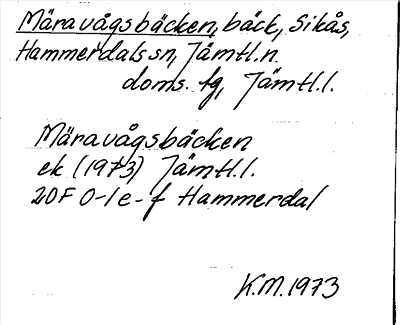 Märavågsbäcken, bäck, Sikås,
Hammerdals sn, Jämtl.n.
doms. fg, Jämtl.l.
Märavågsbäcken
ek (1973) Jämtl.l.
20F 0-1 e-f Hammerdal
K.M. 1973